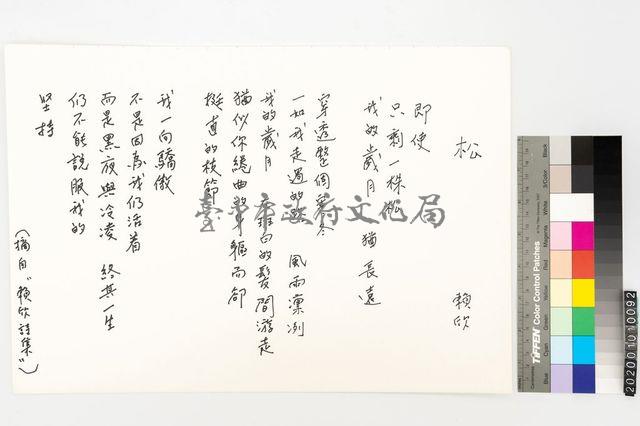 松
賴欣
即使
只剩一株松
我的歲月 猶長遠
穿透整個寒冬
一如我走過的 風雨凜冽
我的歲月 白的髮間游走
猶似你繞曲 軀而卻
挺直的枝節
我一向驕傲
不是因為我们活着
而是黑夜與冷凌 終其一生
仍不能說服我的
坚持
(摘自"賴欣詩集")
臺中市政府文化局
TIFFEN Color Control Patches
Blue
Cyan
Green
Yellow
Red
Magenta
White
3/Color
Black
2020010100092